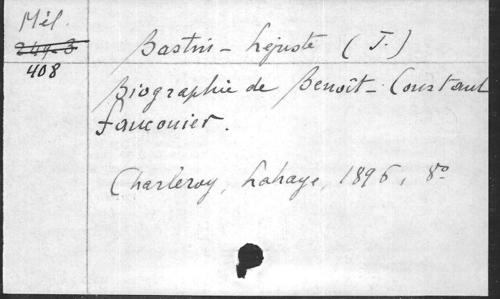 Mél.
249-3
408
Bastin-Lejuste (J.)
Biographie de Benoît-Constant
Fauconier.
Charleroy, Lahaye, 1896, 8º